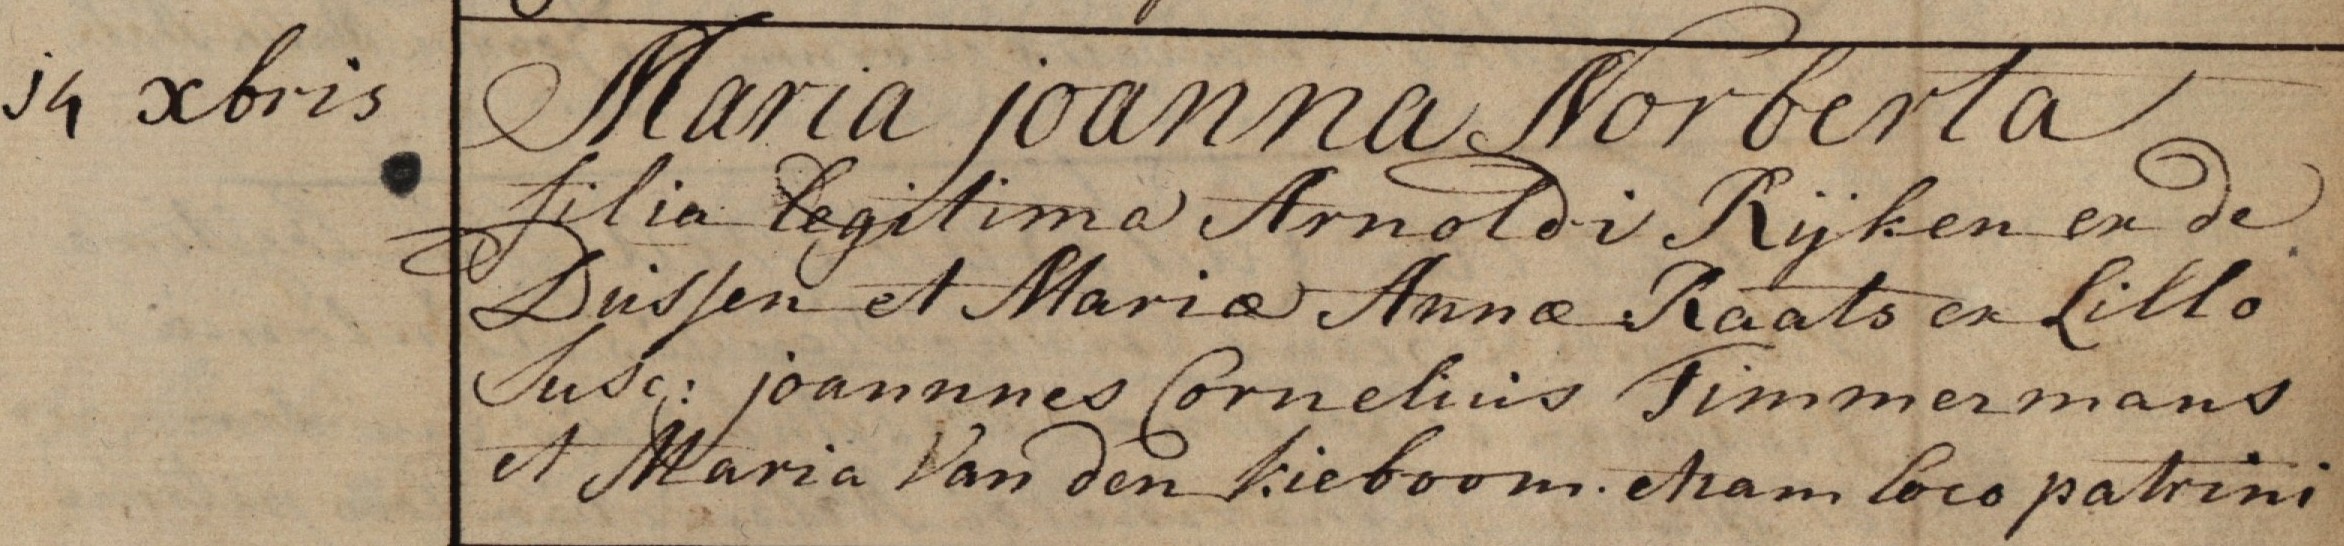 14 xbris
Maria joanna Norberta
filia legitima Arnoldi Rijken ex de
Dussen et Mariæ Annæ Raats ex Lillo
Susc: joannnes Cornelius Timmermans
et Maria Van den kieboom. etiam loco patrini